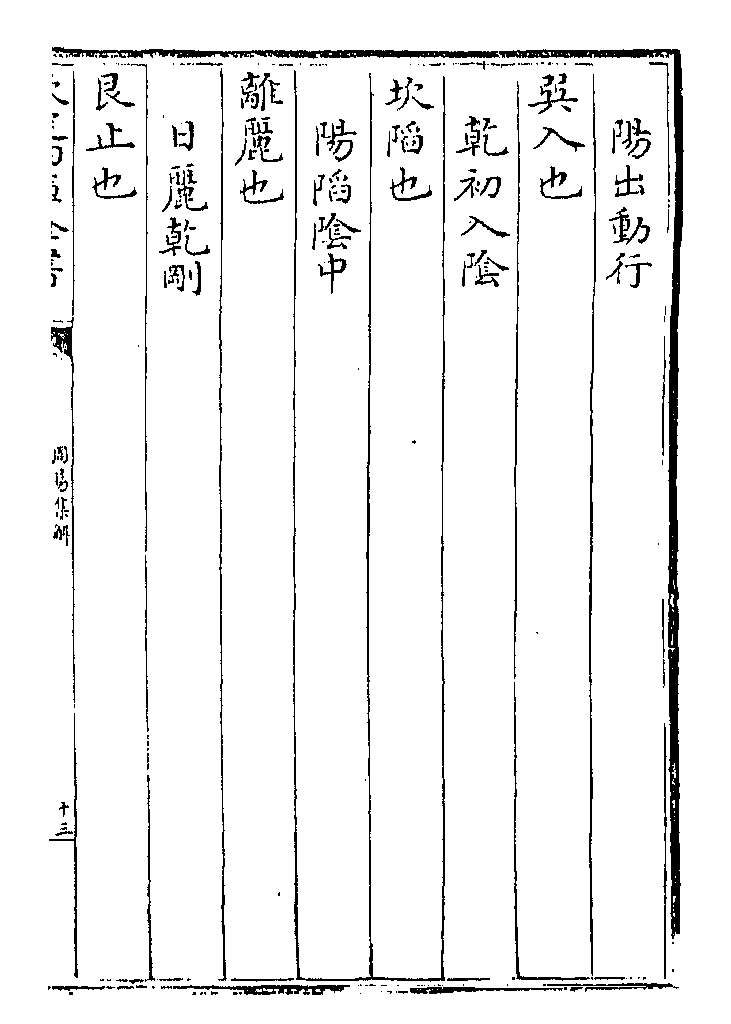 陽出動行
巽入也
乾初入隂
坎陷也
陽陷隂中
離麗也
日麗乾剛
艮止也
周易集解
十三